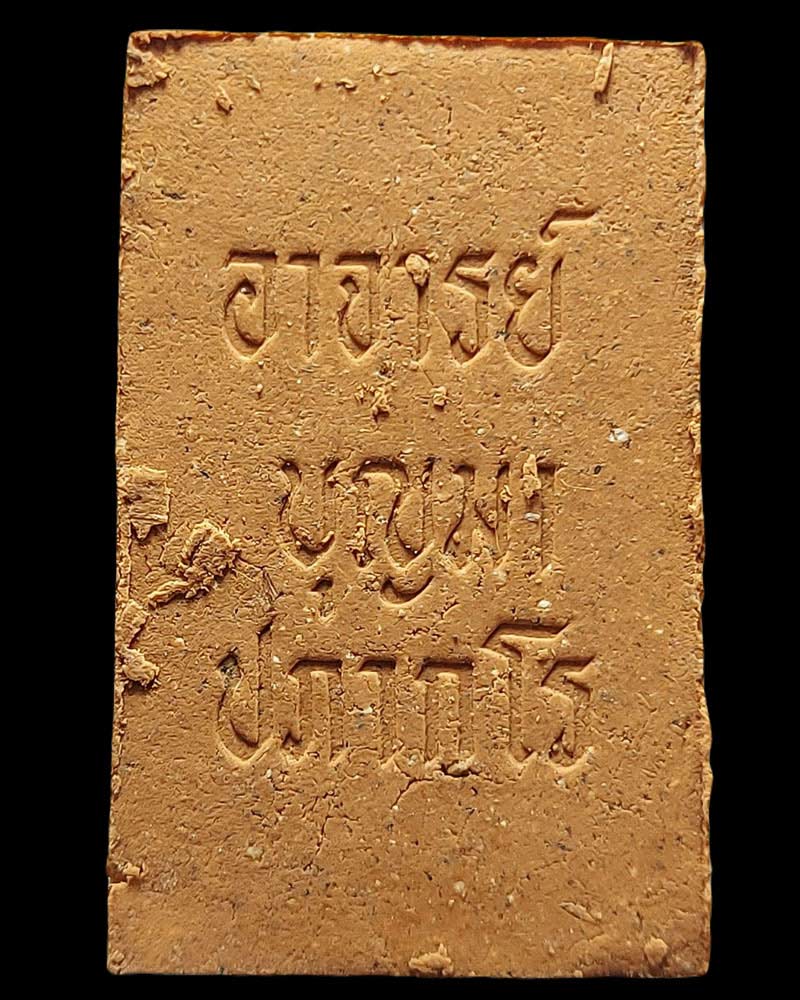 อาจารย์
บุญมา
ปภากโร